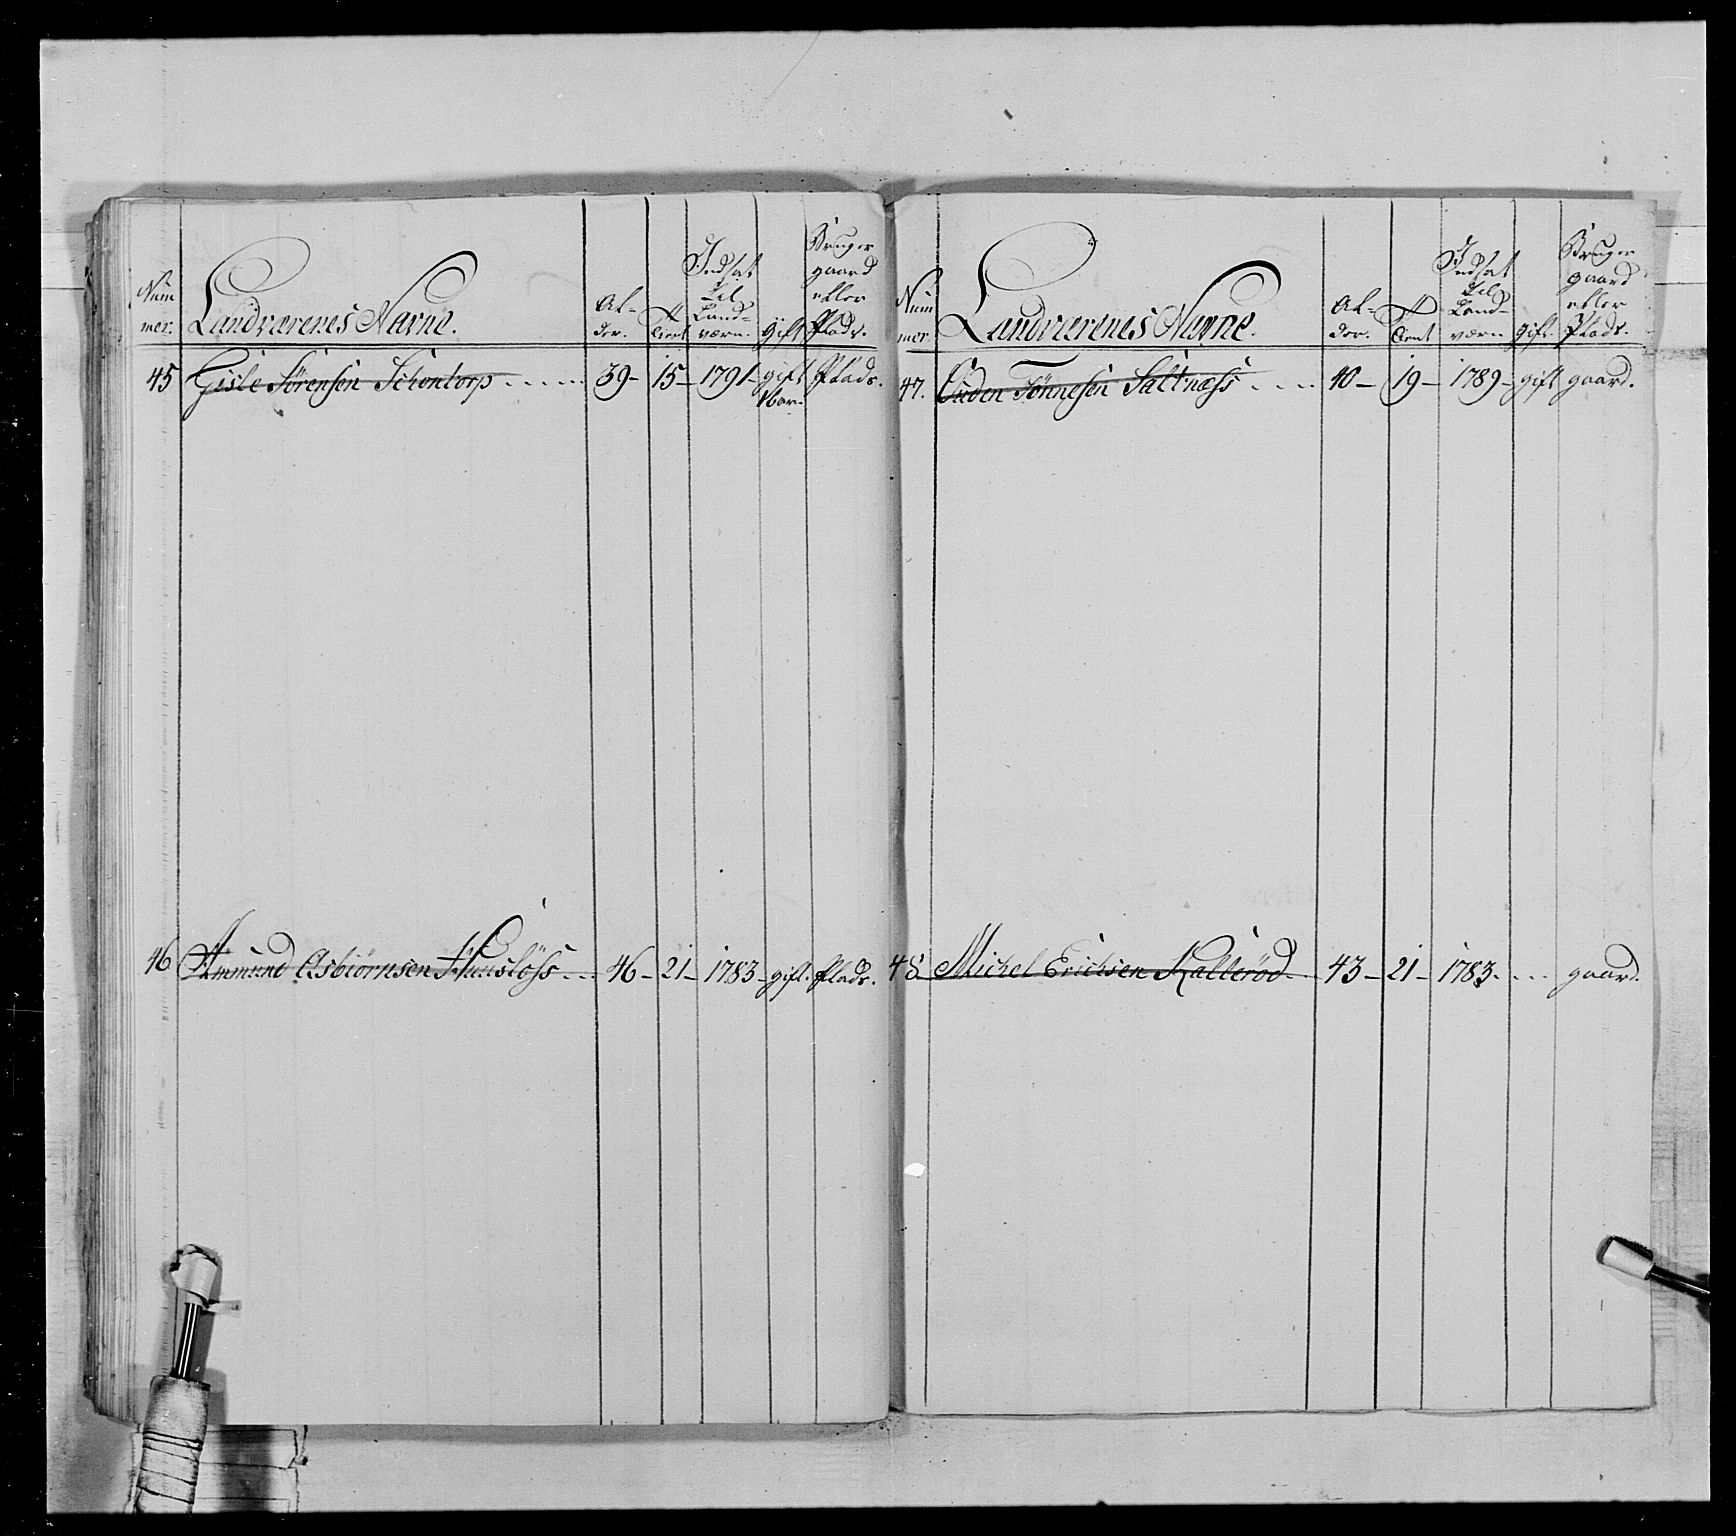 Num
mer.
Landværenes Navne.
Al-
der.
Tient
Indsat
til
Land-
værn.
gift
Bruger
gaard
eller
Plads.
45 Gisle Sörensen Schontorp 39- 15- 1791- gift Plads.
46 Ammund Asbiörnsen Huuslöss 46- 21- 1783- gift. Plads.
Num
mer.
Landværenes Navne.
Al-
der.
Tient
Indsat
til
Land-
værn
gift.
Bruger
gaard
eller
Plads.
47. Guden Tönnesen Saltnæss 40- 19- 1789- gift gaard.
48 Michel Erichsen Kalleröd 43- 21- 1783. gaard.